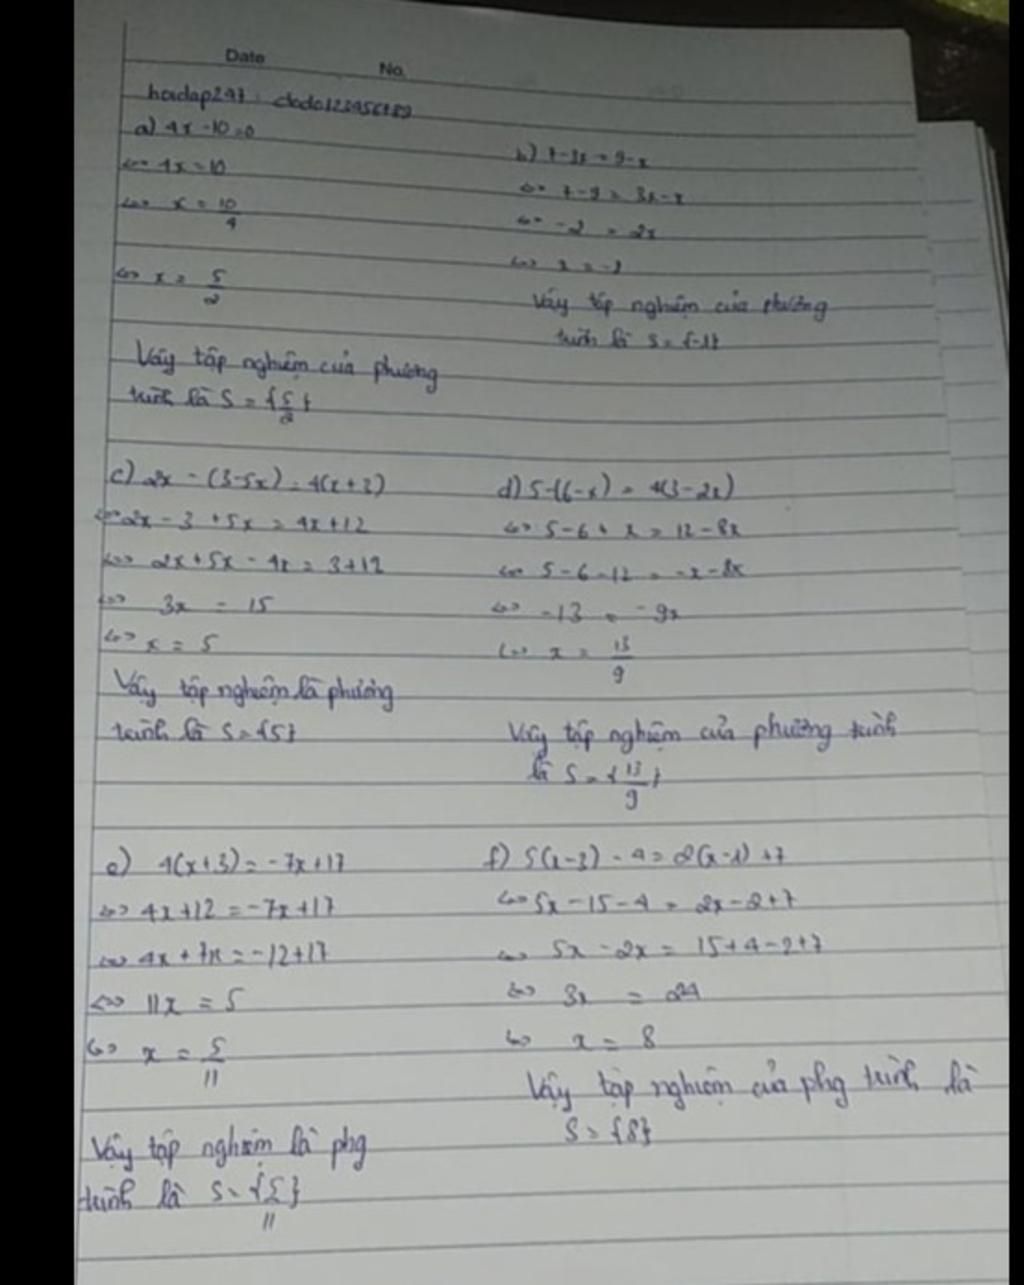 Date No.
a) 4x - 10 = 0
<=> 4x = 10
<=> x = 10/4
<=> x = 5/2
Vậy tập nghiệm của phương
trình là S = {5/2}
b) 7 - 3x = 9 - x
<=> 7 - 9 = 3x - x
<=> -2 = 2x
<=> x = -1
Vậy tập nghiệm của phương
trình là S = {-1}
c) 2x - (3 - 5x) = 4(x + 3)
<=> 2x - 3 + 5x = 4x + 12
<=> 2x + 5x - 4x = 3 + 12
<=> 3x = 15
<=> x = 5
Vậy tập nghiệm là phương
trình là S = {5}
d) 5 - (6 - x) = 4(3 - 2x)
<=> 5 - 6 + x = 12 - 8x
<=> 5 - 6 - 12 = -x - 8x
<=> -13 = -9x
<=> x = 13/9
Vậy tập nghiệm của phương trình
là S = {13/9}
e) 4(x + 3) = -7x + 17
<=> 4x + 12 = -7x + 17
<=> 4x + 7x = -12 + 17
<=> 11x = 5
<=> x = 5/11
Vậy tập nghiệm là phg
trình là S = {5/11}
f) 5(x - 3) - 4 = 2(x - 1) + 7
<=> 5x - 15 - 4 = 2x - 2 + 7
<=> 5x - 2x = 15 + 4 - 2 + 7
<=> 3x = 24
<=> x = 8
Vậy tập nghiệm của phg trình là
S = {8}